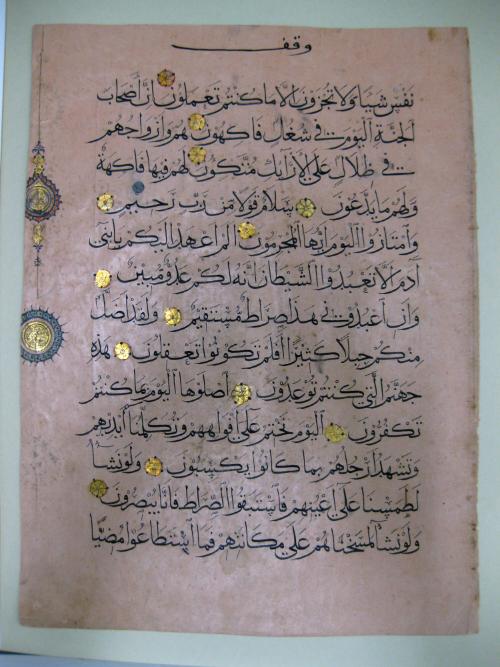 وقف
نفس شيئا ولا تجزون الا ما كنتم تعملون ان اصحاب
الجنة اليوم في شغل فاكهون هم وازواجهم
في ظلال على الارائك متكئون لهم فيها فاكهة
ولهم ما يدعون سلام قولا من رب رحيم
وامتازوا اليوم ايها المجرمون الم اعهد اليكم يا بني
آدم الا تعبدوا الشيطان انه لكم عدو مبين
وان اعبدوني هذا صراط مستقيم ولقد اضل
منكم جبلا كثيرا افلم تكونوا تعقلون هذه
جهنم التي كنتم توعدون اصلوها اليوم بما كنتم
تكفرون اليوم نختم على افواههم وتكلمنا ايديهم
وتشهد ارجلهم بما كانوا يكسبون ولو نشا
لطمسنا على اعينهم فاستبقوا الصراط فانا يبصرون
ولو نشا لمسخناهم على مكانتهم فما استطاعوا مضيا